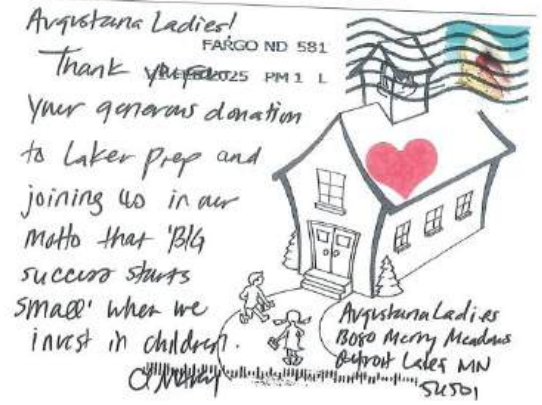 Augustana Ladies!
FARGO ND 581
Thank you for
2025 PM 1 L
your generous donation
to Laker Prep and
joining us in our
motto that 'BIG
success starts
small' when we
invest in children.
Augustana Ladies
Merry Meadows
Detroit Lakes MN
56501